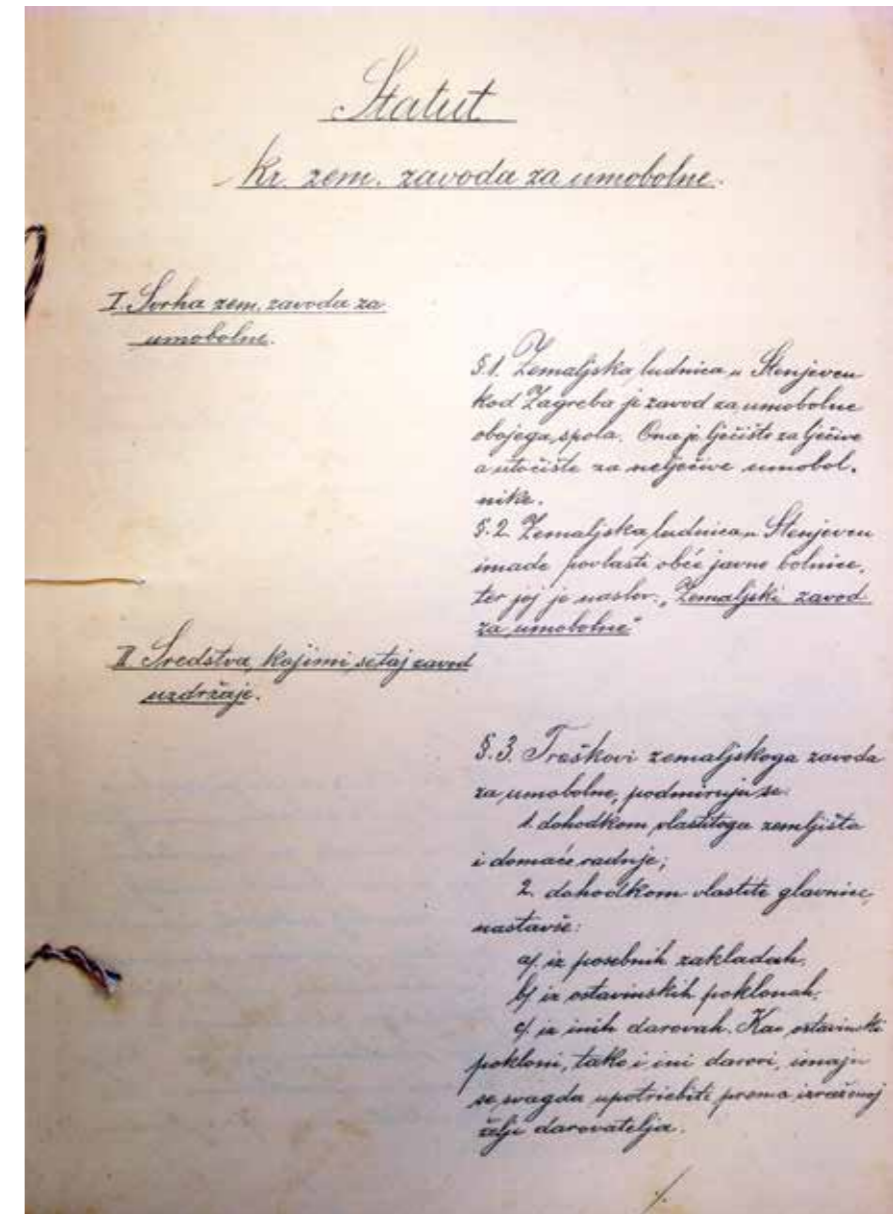 Statut
kr. zem. zavoda za umobolne.
I. Svrha zem. zavoda za
umobolne.
§.1. Zemaljska ludnica u Stenjevcu
kod Zagreba je zavod za umobolne
obojega spola. Ona je lječište za lječive
a utočište za nelječive umobol-
nike.
§.2. Zemaljska ludnica u Stenjevcu
imade povlasti obće javne bolnice,
ter joj je naslov: „Zemaljski zavod
za umobolne"
II Sredstva, kojimi se taj zavod
uzdržaje.
§.3. Troškovi zemaljskoga zavoda
za umobolne, podmiruju se:
1. dohodkom vlastitoga zemljišta
i domaće radnje;
2. dohodkom vlastite glavnice,
nastavše:
a/. iz posebnih zakladah,
b/ iz ostavinskih poklonah,
c/. iz inih darovah. Kao ostavinski
pokloni, tako i ini darovi, imaju
se svagda upotriebiti prema izraženoj
želji darovatelja.
./.